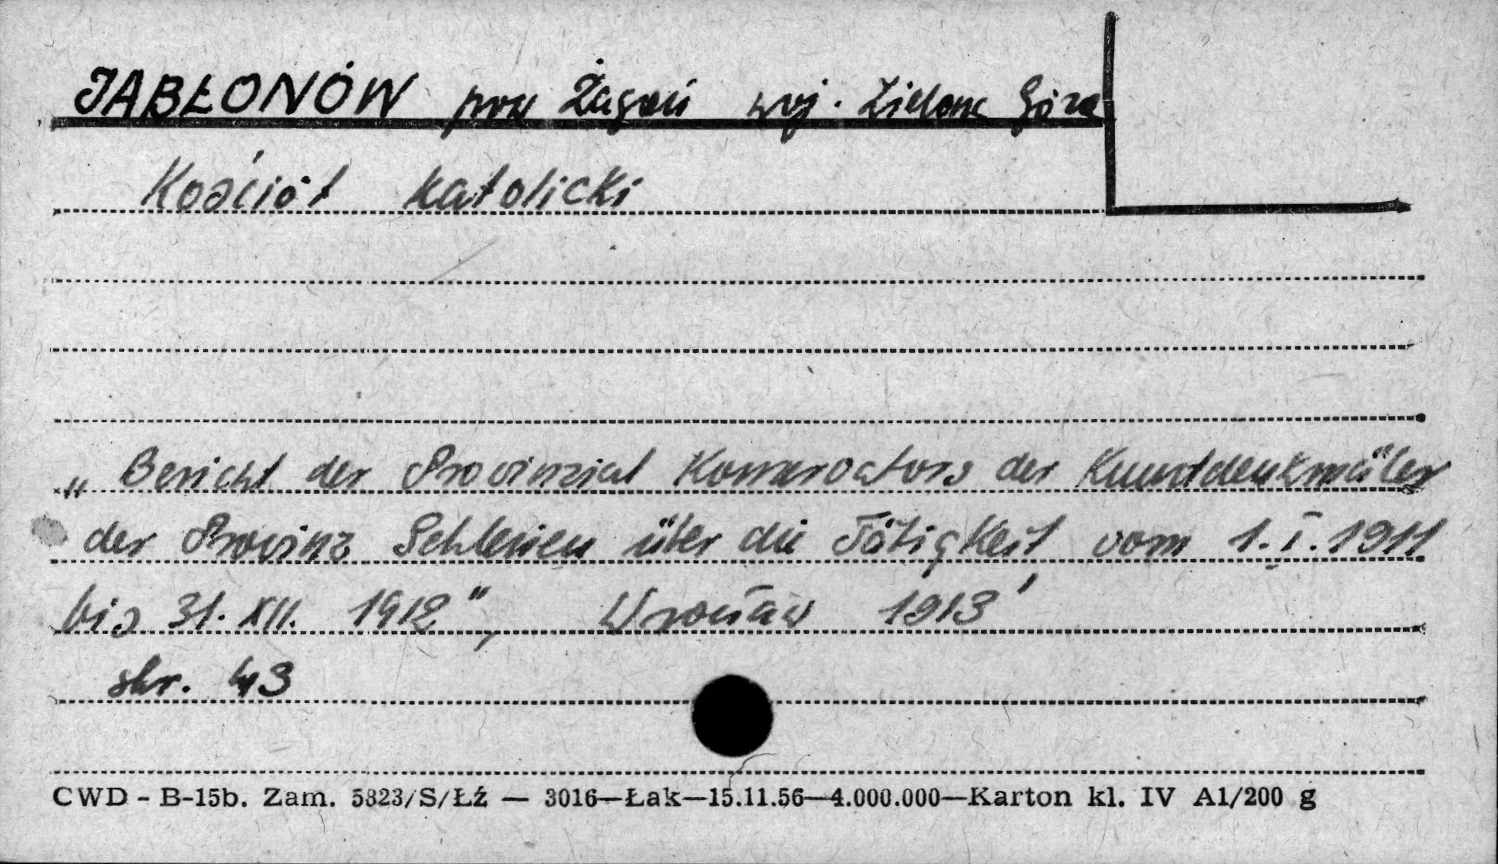 JABŁONÓW pow Żagań woj. Zielona Góra
Kościół katolicki
„Bericht der Provinzial Konservators der Kunstdenkmäler
der Provinz Schlesien über die Tätigkeit vom 1.I.1911
bis 31.XII. 1912", Wrocław 1913
str. 43
CWD - B-15b. Zam. 5823/S/Łź — 3016—Łak—15.11.56—4.000.000—Karton kl. IV A1/200 g